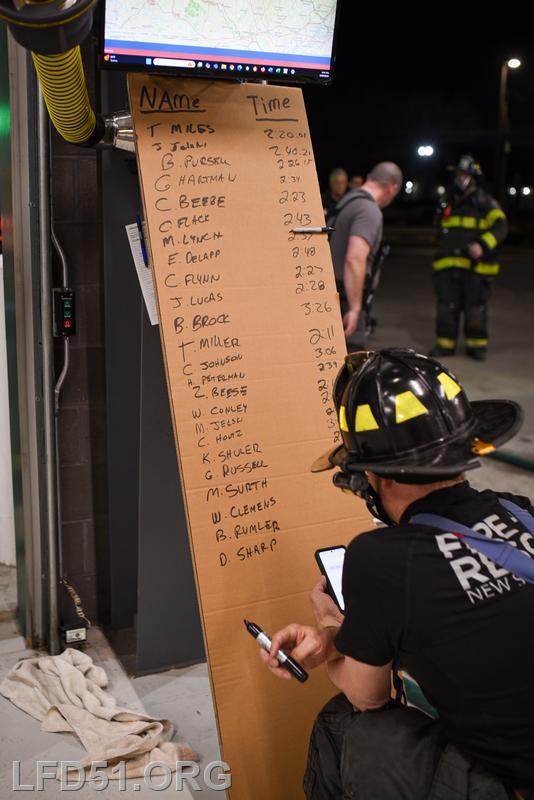 NAMe Time
T MILES 2:20.01
J Jelski 2:40.21
B. PURSELL 2:26.15
G HARTMAN 2:34
C. BEEBE 2:23
C FLACK 2:43
M. LYNCH
E. DELAPP 2:48
C. FLYNN 2:27
J. LUCAS 2:28
B. BROCK 3:26
T. MILLER 2:11
C JOHNSON 3:06
H. PETERMAN
Z. BEESE
W. CONLEY
M. JELSKI
C. HOLTZ
K. SHULER
G. RUSSELL
M. SURTH
W. CLEMENS
B. RUMLER
D. SHARP
FIRE
NEW
LFD51.ORG